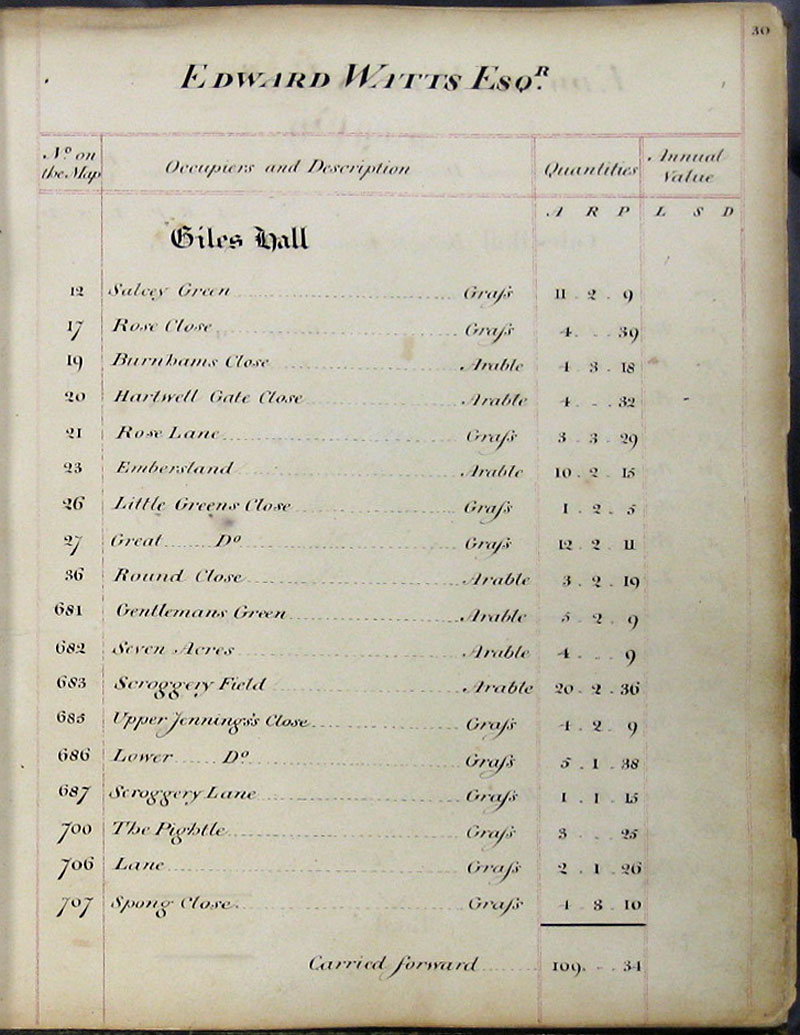 30
Edward Witts Esqr.
No. on the Map Occupiers and Description Quantities Annual Value
A R P L S D
Giles Hall
12 Salcey Green Graſs 11 . 2 . 9
17 Rose Close Graſs 4 . - . 39
19 Burnhams Close Arable 4 . 3 . 18
20 Hartwell Gate Close Arable 4 . - . 32
21 Rose Lane Graſs 3 . 3 . 29
23 Embersland Arable 10 . 2 . 15
26 Little Greens Close Graſs 1 . 2 . 5
27 Great Do Graſs 12 . 2 . 11
36 Round Close Arable 3 . 2 . 19
681 Gentlemans Green Arable 5 . 2 . 9
682 Seven Acres Arable 4 . - . 9
683 Scroggery Field Arable 20 . 2 . 36
685 Upper Jennings's Close Graſs 4 . 2 . 9
686 Lower Do Graſs 5 . 1 . 38
687 Scroggery Lane Graſs 1 . 1 . 15
700 The Pightle Graſs 3 . - . 25
706 Lane Graſs 2 . 1 . 26
707 Spong Close Graſs 4 . 3 . 10
Carried forward 109 . - . 34